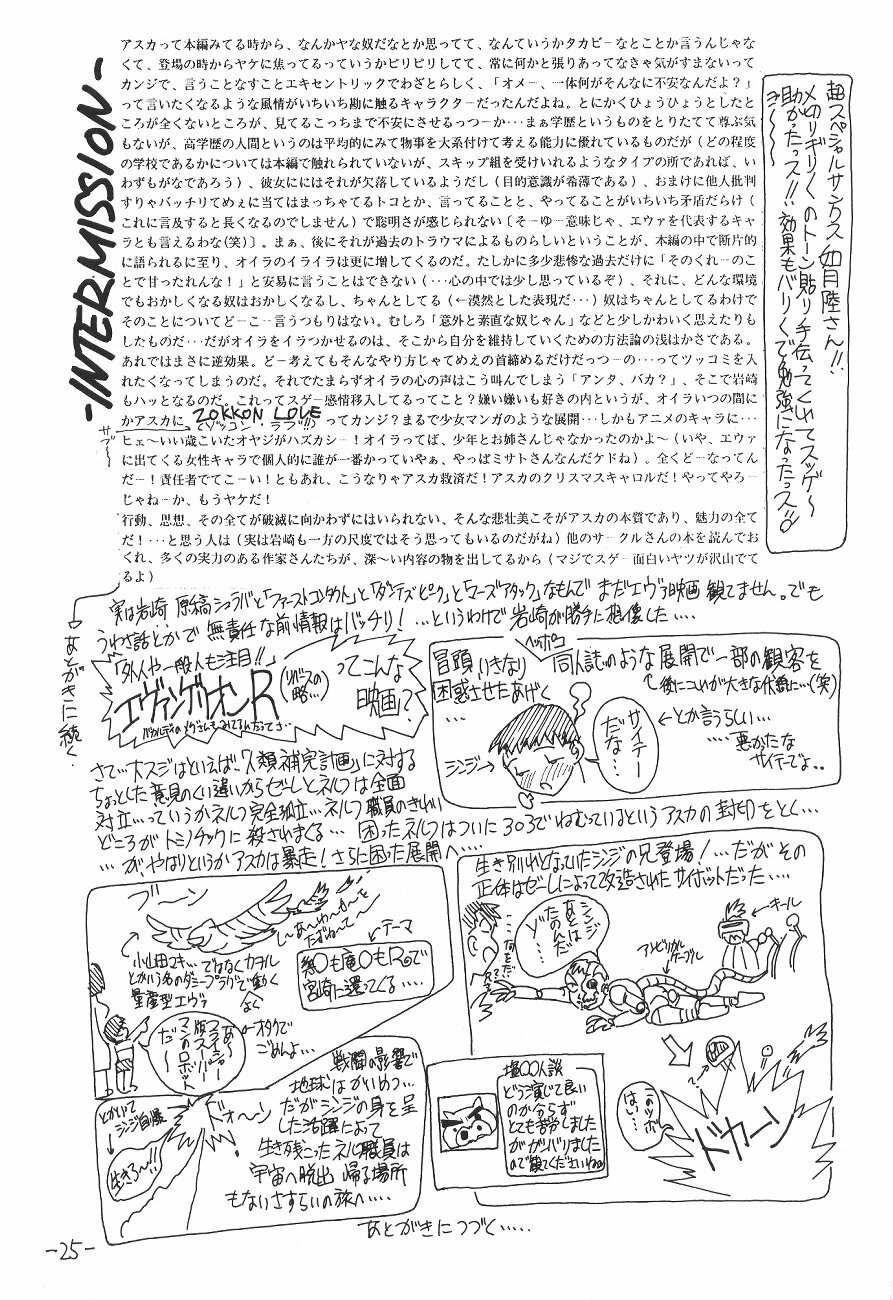 -INTERMISSION-
アスカって本編みてる時から、なんかヤな奴だなとか思ってて、なんていうかタカビーなとことか言うんじゃな
くて、登場の時からヤケに焦ってるっていうかピリピリしてて、常に何かと張りあってなきゃ気がすまないって
カンジで、言うことなすことエキセントリックでわざとらしく、「オメー、一体何がそんなに不安なんだよ？」
って言いたくなるような風情がいちいち勘に触るキャラクターだったんだよね。とにかくひょうひょうとしたと
ころが全くないところが、見てるこっちまで不安にさせるっつーか･･･まぁ学歴というものをとりたてて尊ぶ気
もないが、高学歴の人間というのは平均的にみて物事を大系付けて考える能力に優れているものだが（どの程度
の学校であるかについては本編で触れられていないが、スキップ組を受けいれるようなタイプの所であれば、い
わずもがなであろう）、彼女ににはそれが欠落しているようだし（目的意識が希薄である）、おまけに他人批判
すりゃバッチリてめぇに当てはまっちゃてるトコとか、言ってることと、やってることがいちいち矛盾だらけ（
これに言及すると長くなるのでしません）で聡明さが感じられない〔そーゆー意味じゃ、エヴァを代表するキャ
ラとも言えるわな(笑)〕。まぁ、後にそれが過去のトラウマによるものらしいということが、本編の中で断片的
に語られるに至り、オイラのイライラは更に増してくるのだ。たしかに多少悲惨な過去だけに「そのくれーのこ
とで甘ったれんな！」と安易に言うことはできない（･･･心の中では少し思っているぞ）、それに、どんな環境
でもおかしくなる奴はおかしくなるし、ちゃんとしてる（←漠然とした表現だ･･･）奴はちゃんとしてるわけで
そのことについてどーこー言うつもりはない。むしろ「意外と素直な奴じゃん」などと少しかわいく思えたりも
したものだ･･･だがオイラをイラつかせるのは、そこから自分を維持していくための方法論の浅はかさである。
あれではまさに逆効果。どー考えてもそんなやり方じゃてめえの首締めるだけだっつーの･･･ってツッコミを入
れたくなってしまうのだ。それでたまらずオイラの心の声はこう叫んでしまう「アンタ、バカ？」、そこで岩崎
もハッとなるのだ。これってスゲー感情移入してるってこと？嫌い嫌いも好きの内というが、オイラいつの間に
かアスカに ZOKKON LOVE ってカンジ？まるで少女マンガのような展開･･･しかもアニメのキャラに･･･
(ゾッコン・ラブ!!)
サブ～
ヒェ～いい歳こいたオヤジがハズカシー！オイラってば、少年とお姉さんじゃなかったのかよ～（いや、エヴァ
に出てくる女性キャラで個人的に誰が一番かっていやぁ、やっぱミサトさんなんだケドね）。全くどーなってん
だー！責任者でてこーい！ともあれ、こうなりゃアスカ救済だ！アスカのクリスマスキャロルだ！やってやろー
じゃねーか、もうヤケだ！
行動、思想、その全てが破滅に向かわずにはいられない、そんな悲壮美こそがアスカの本質であり、魅力の全て
だ！･･･と思う人は（実は岩崎も一方の尺度ではそう思ってもいるのだがね）他のサークルさんの本を読んでお
くれ、多くの実力のある作家さんたちが、深～い内容の物を出してるから（マジでスゲー面白いヤツが沢山でて
るよ）
あとがきに続く
超スペシャルサンクス 如月陸さん!!
〆切りギリギリのトーン貼り手伝ってくれてスッゲ～
助かったっス!! 効果もバリバリで勉強になったっス!!
実は岩崎 原稿シュラバと「ファーストコンタクト」と「ダンテズ・ピーク」と「マーズアタック」なもんで まだエヴァ映画観てません。でも
うわさ話とかで 無責任な前情報はバッチリ！…というわけで 岩崎が勝手に想像した‥‥
「外人や一般人も注目!!」
エヴァンゲリオンR
(リバースの略…)
ってこんな
映画？
冒頭 いきなり ヘッポコ 同人誌のような展開で一部の観客を
困惑させたあげく
…
後にコレが大きな伏線に…(笑)
シンジ→
サイテーだな…
←とか言うらしい…
‥‥悪かたな
サイテーでよ。。
さて…大スジはといえば、「人類補完計画」に対する
ちょっとした意見のくい違いからゼーレとネルフは全面
対立…っていうかネルフ完全孤立…ネルフ職員のきれい
どころがトミノチックに殺されまくる… 困ったネルフはついに303でねむっているというアスカの封印をとく…
…が、やはりというかアスカは暴走！さらに困った展開へ…
ブーン
し～あ～わ～せ～を
たずね～て～
小山田マキ…ではなくカヲル
とかいう名のダミープラグで動く
量産型エヴァ
テーマ
宮崎に還ってくる‥‥
あ～フライシャー版スーパーマンのロボットだ～
←オタクで
ごめんよ…
生き別れとなっていたシンジの兄登場！…だがその
正体はゼーレによって改造されたサイボットだった‥‥
…何をだ？
シンジあとはたのんだゾ…
アンビリカル
ケーブル
←キール
このツボはいい…
ドカーン
とかいって
シンジ自爆
生きろ～!!
ドォーン
戦闘の影響で
地球はかいめつ…
だがシンジの身を呈
した活躍によって
生き残こったネルフ職員は
宇宙へ脱出 帰る場所
もないさすらいの旅へ‥‥
塩○○人談
どう演じて良い
のか分らず
とても苦労しました
がガンバりました
ので観てくださいね
あとがきにつづく‥‥
-25-